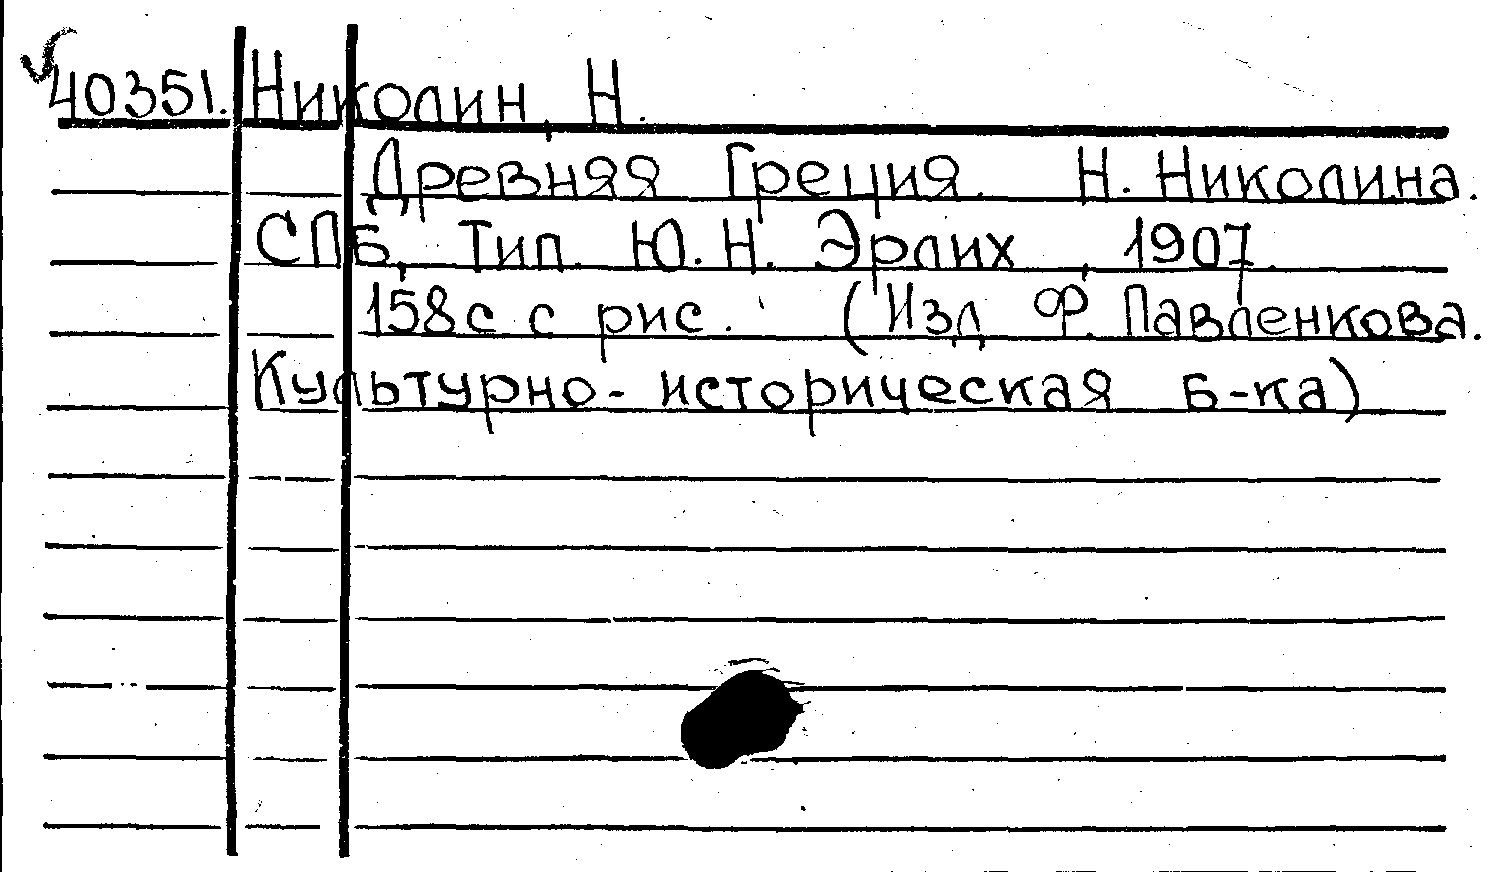 40351. Николин, Н.
Древняя Греция. Н. Николина.
СПБ, Тип. Ю. Н. Эрлих, 1907.
158с с рис. (Изд. Ф. Павленкова.
Культурно-историческая б-ка)